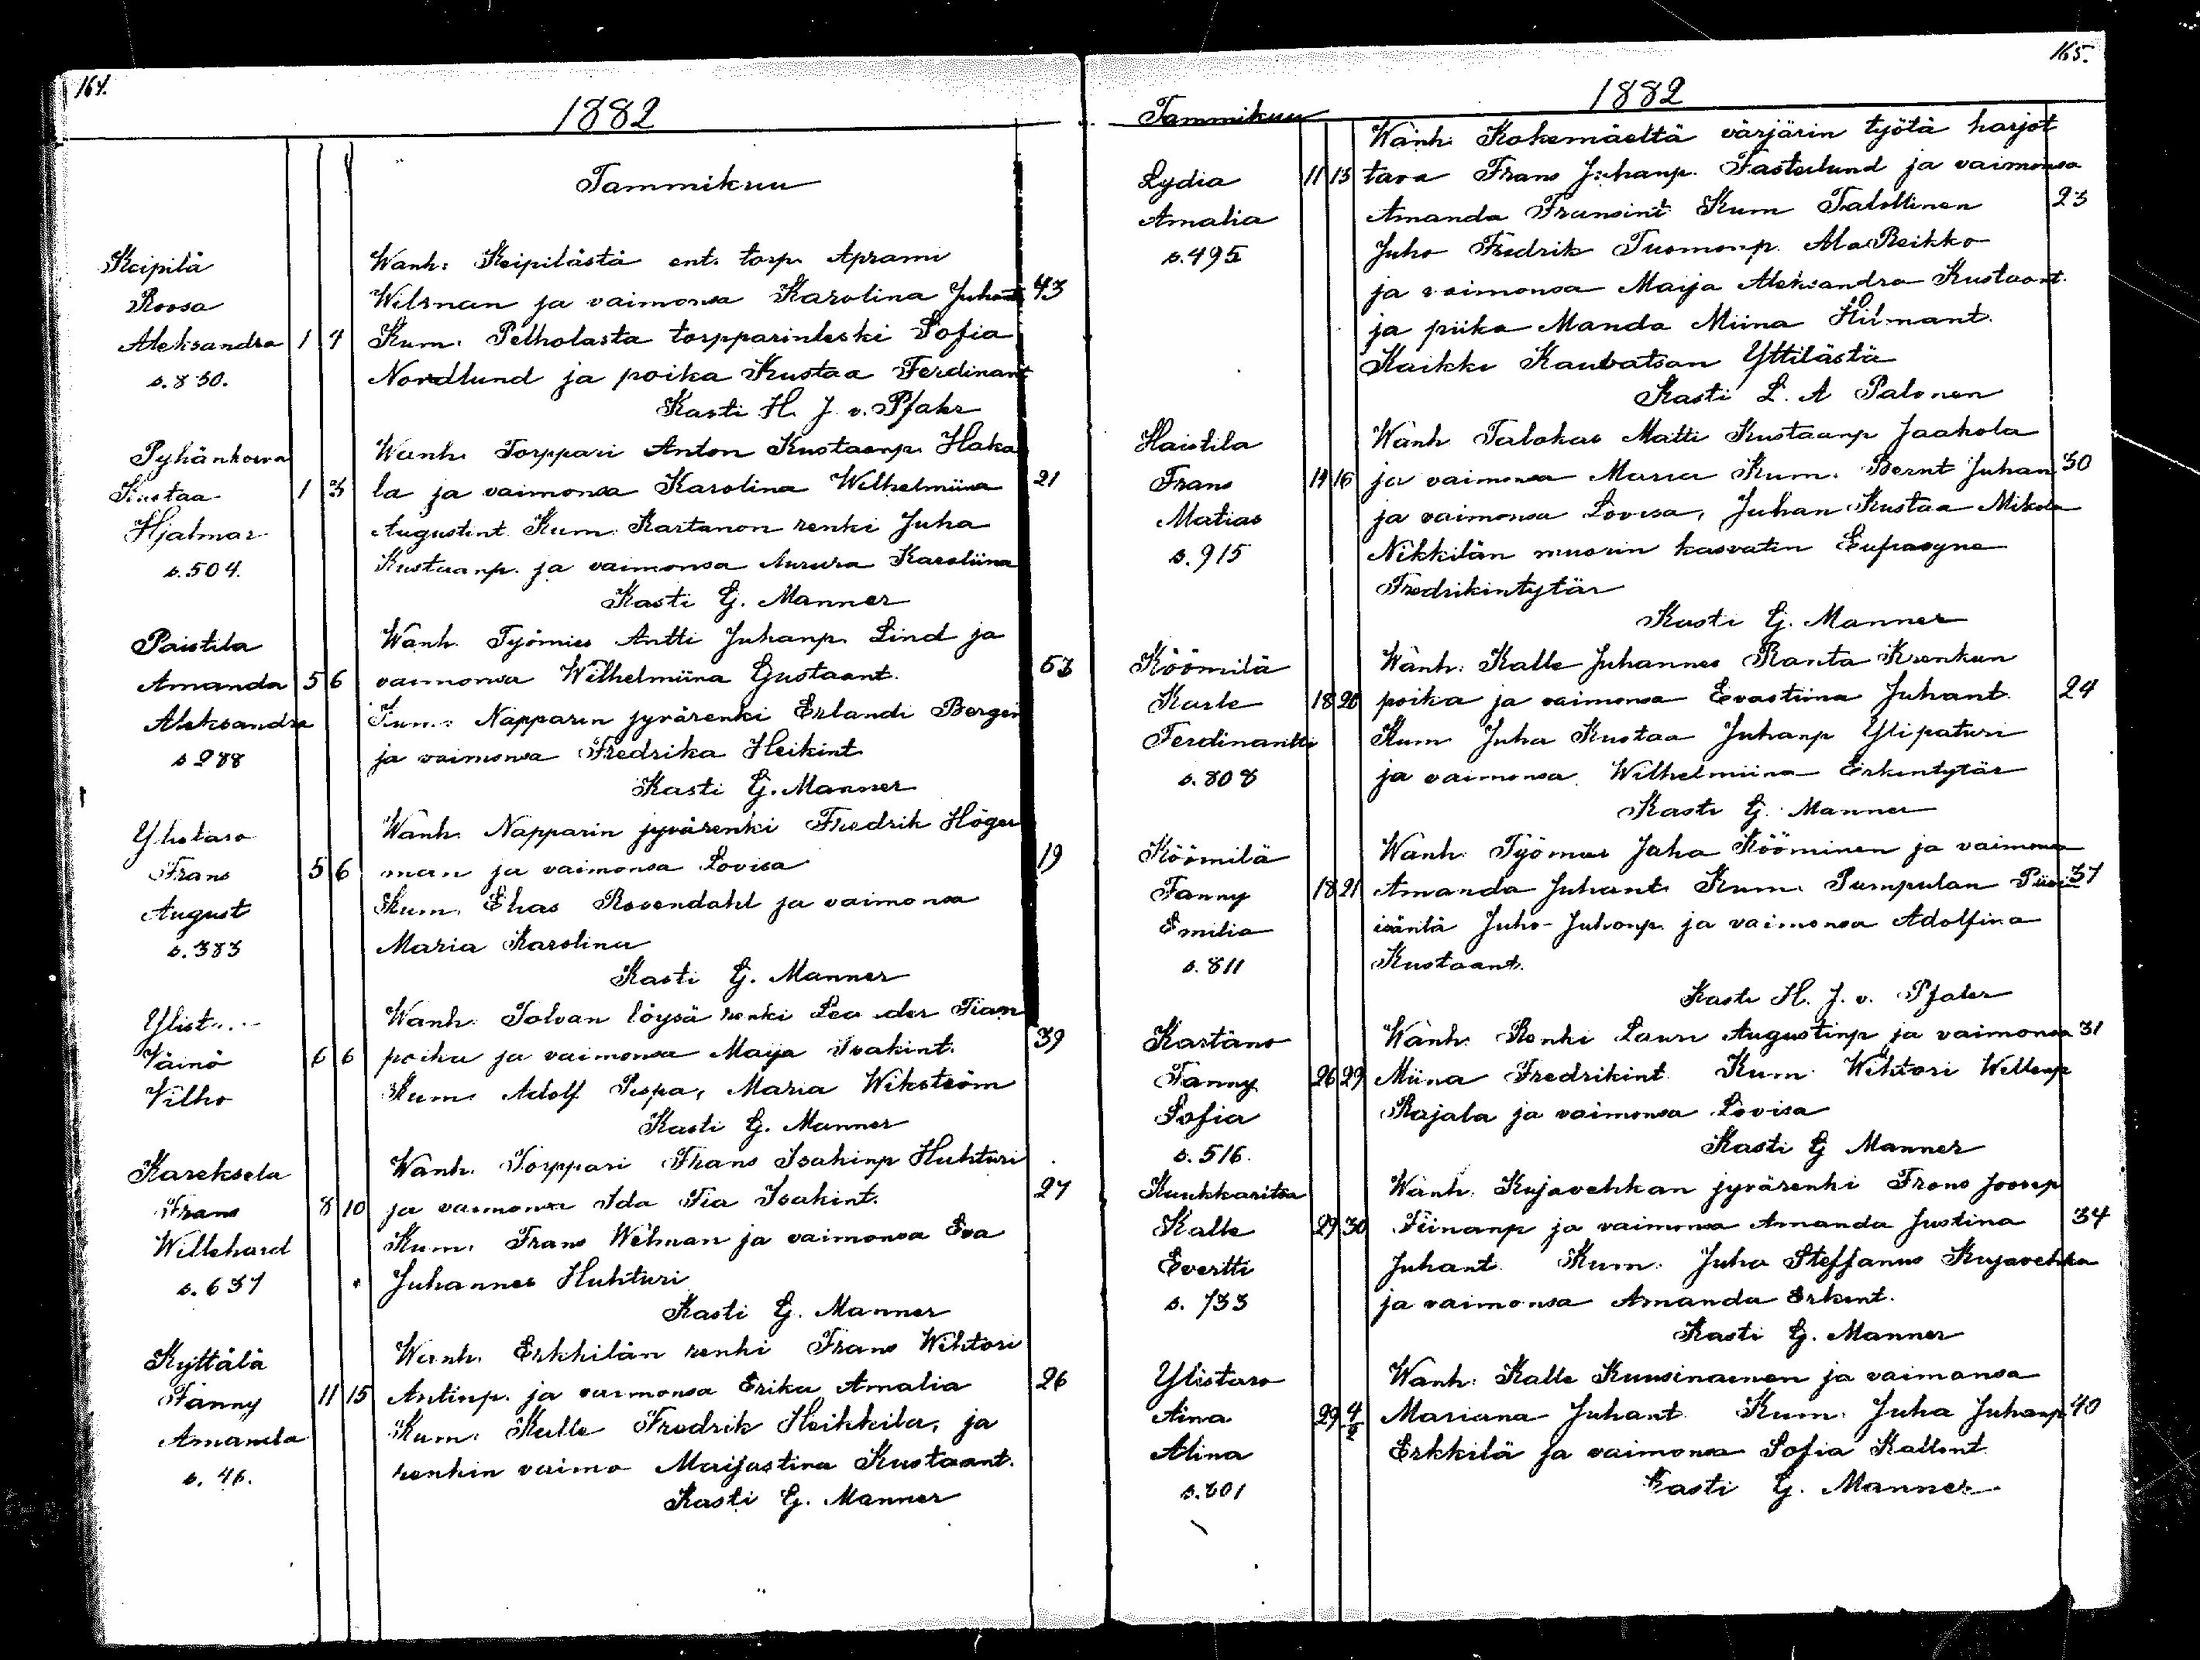 164.
1882
Tammikuu
Keipilä
Roosa
Aleksandra 1 4
s. 830.
Wanh: Keipilästä ent. torp. Aprami
Wilsman ja vaimonsa Karolina Juhant 43
Kum. Pelholasta torpparinleski Sofia
Nordlund ja poika Kustaa Ferdinant
Kasti H. J. v. Pfaler
Pyhänkorva
Kustaa 1 3
Hjalmar
s. 504.
Wanh. Torppari Anton Kustaanp. Haka
la ja vaimonsa Karolina Wilhelmiina 21
Augustint. Kum. Kartanon renki Juha
Kustaanp. ja vaimonsa Aurura Karoliina
Kasti G. Manner
Paistila
Amanda 5 6
Aleksandra
s 288
Wanh. Työmies Antti Juhanp. Lind ja
vaimonsa Wilhelmiina Gustaant. 53
Kum.: Napparin jyvärenki Erlandi Bergen
ja vaimonsa Fredrika Heikint
Kasti G. Manner
Ylistaro
Frans 5 6
August
s. 383
Wanh. Napparin jyvärenki Fredrik Höger
man ja vaimonsa Lovisa 19
Kum. Elias Rosendahl ja vaimonsa
Maria Karolina
Kasti G. Manner
Ylist....
Väinö 6 6
Vilho
Wanh. Tolvan löysä renki Lea der Tian
poika ja vaimonsa Maija Isakint. 39
Kum. Adolf Maria Wikström
Kasti G. Manner
Kareksela
Frans 8 10
Willehard
s. 637
Wanh. Torppari Frans Isakinp Huhturi
ja vaimonsa Ida Tia Isakint. 27
Kum. Frans Welman ja vaimonsa Eva
Juhannes Huhturi
Kasti G. Manner
Kyttälä
Fanny 11 15
Amanda
s. 46.
Wanh. Erkkilän renki Frans Wihtori
Antinp. ja vaimonsa Erika Amalia 26
Kum. Kalle Fredrik Heikkila, ja
renkin vaimo Maijastina Kustaant.
Kasti G. Manner
165.
1882
Tammikuu
Lydia 11 15
Amalia
s. 495
Wanh. Kokemäeltä värjärin työtä harjot
tava Frans Juhanp. Fasterlund ja vaimonsa
Amanda Fransint Kum Talollinen 23
Juho Fredrik Tuomonp. Ala Reikko
ja vaimonsa Maija Aleksandra Kustaant.
ja piika Manda Miina Hilmant.
Kaikki Kauvatsan Yttilästä
Kasti L. A Palonen
Haistila
Frans 14 16
Matias
s. 915
Wanh Talokas Matti Kustaanp Jaakola
ja vaimonsa Maria Kum. Bernt Juhan 30
ja vaimonsa Lovisa, Juhan Kustaa Mikola
Nikkilän muorin kasvatin Eufrosyne
Fredrikintytär
Kasti G. Manner
Köömilä
Karle 18 20
Ferdinantti
s. 808
Wanh. Kalle Juhannes Ranta Krenkun
poika ja vaimonsa Evastiina Juhant. 24
Kum Juha Kustaa Juhanp Ylipaturi
ja vaimonsa Wilhelmiina Erkintytär
Kasti G. Manner
Köömilä
Fanny 18 21
Emilia
s. 811
Wanh. Työmies Juha Kööminen ja vaimonsa
Amanda Juhant. Kum. Pumpulan 37
isäntä Juho-Juhanp. ja vaimonsa Adolfina
Kustaant.
Kasti H. J. v. Pfaler
Kartano
Fanny 26 29
Sofia
s. 516.
Wanh. Renki Lauri Augustinp ja vaimonsa 31
Miina Fredrikint. Kum. Wihtori Willenp
Rajala ja vaimonsa Lovisa
Kasti G Manner
Kuukkaritsa
Kalle 29 30
Evertti
s. 733
Wanh. Kujavehkan jyvärenki Frans Joosep
Tiinanp ja vaimonsa Amanda Justina 34
Juhant. Kum. Juha Steffanus Kujavehka
ja vaimonsa Amanda Erkint.
Kasti G. Manner
Ylistaro
Aina 29 4/2
Alina
s. 301
Wanh. Kalle Kuusinaenen ja vaimonsa
Mariana Juhant Kum. Juha Juhanp 40
Erkkilä ja vaimonsa Sofia Kallent.
Kasti G. Manner